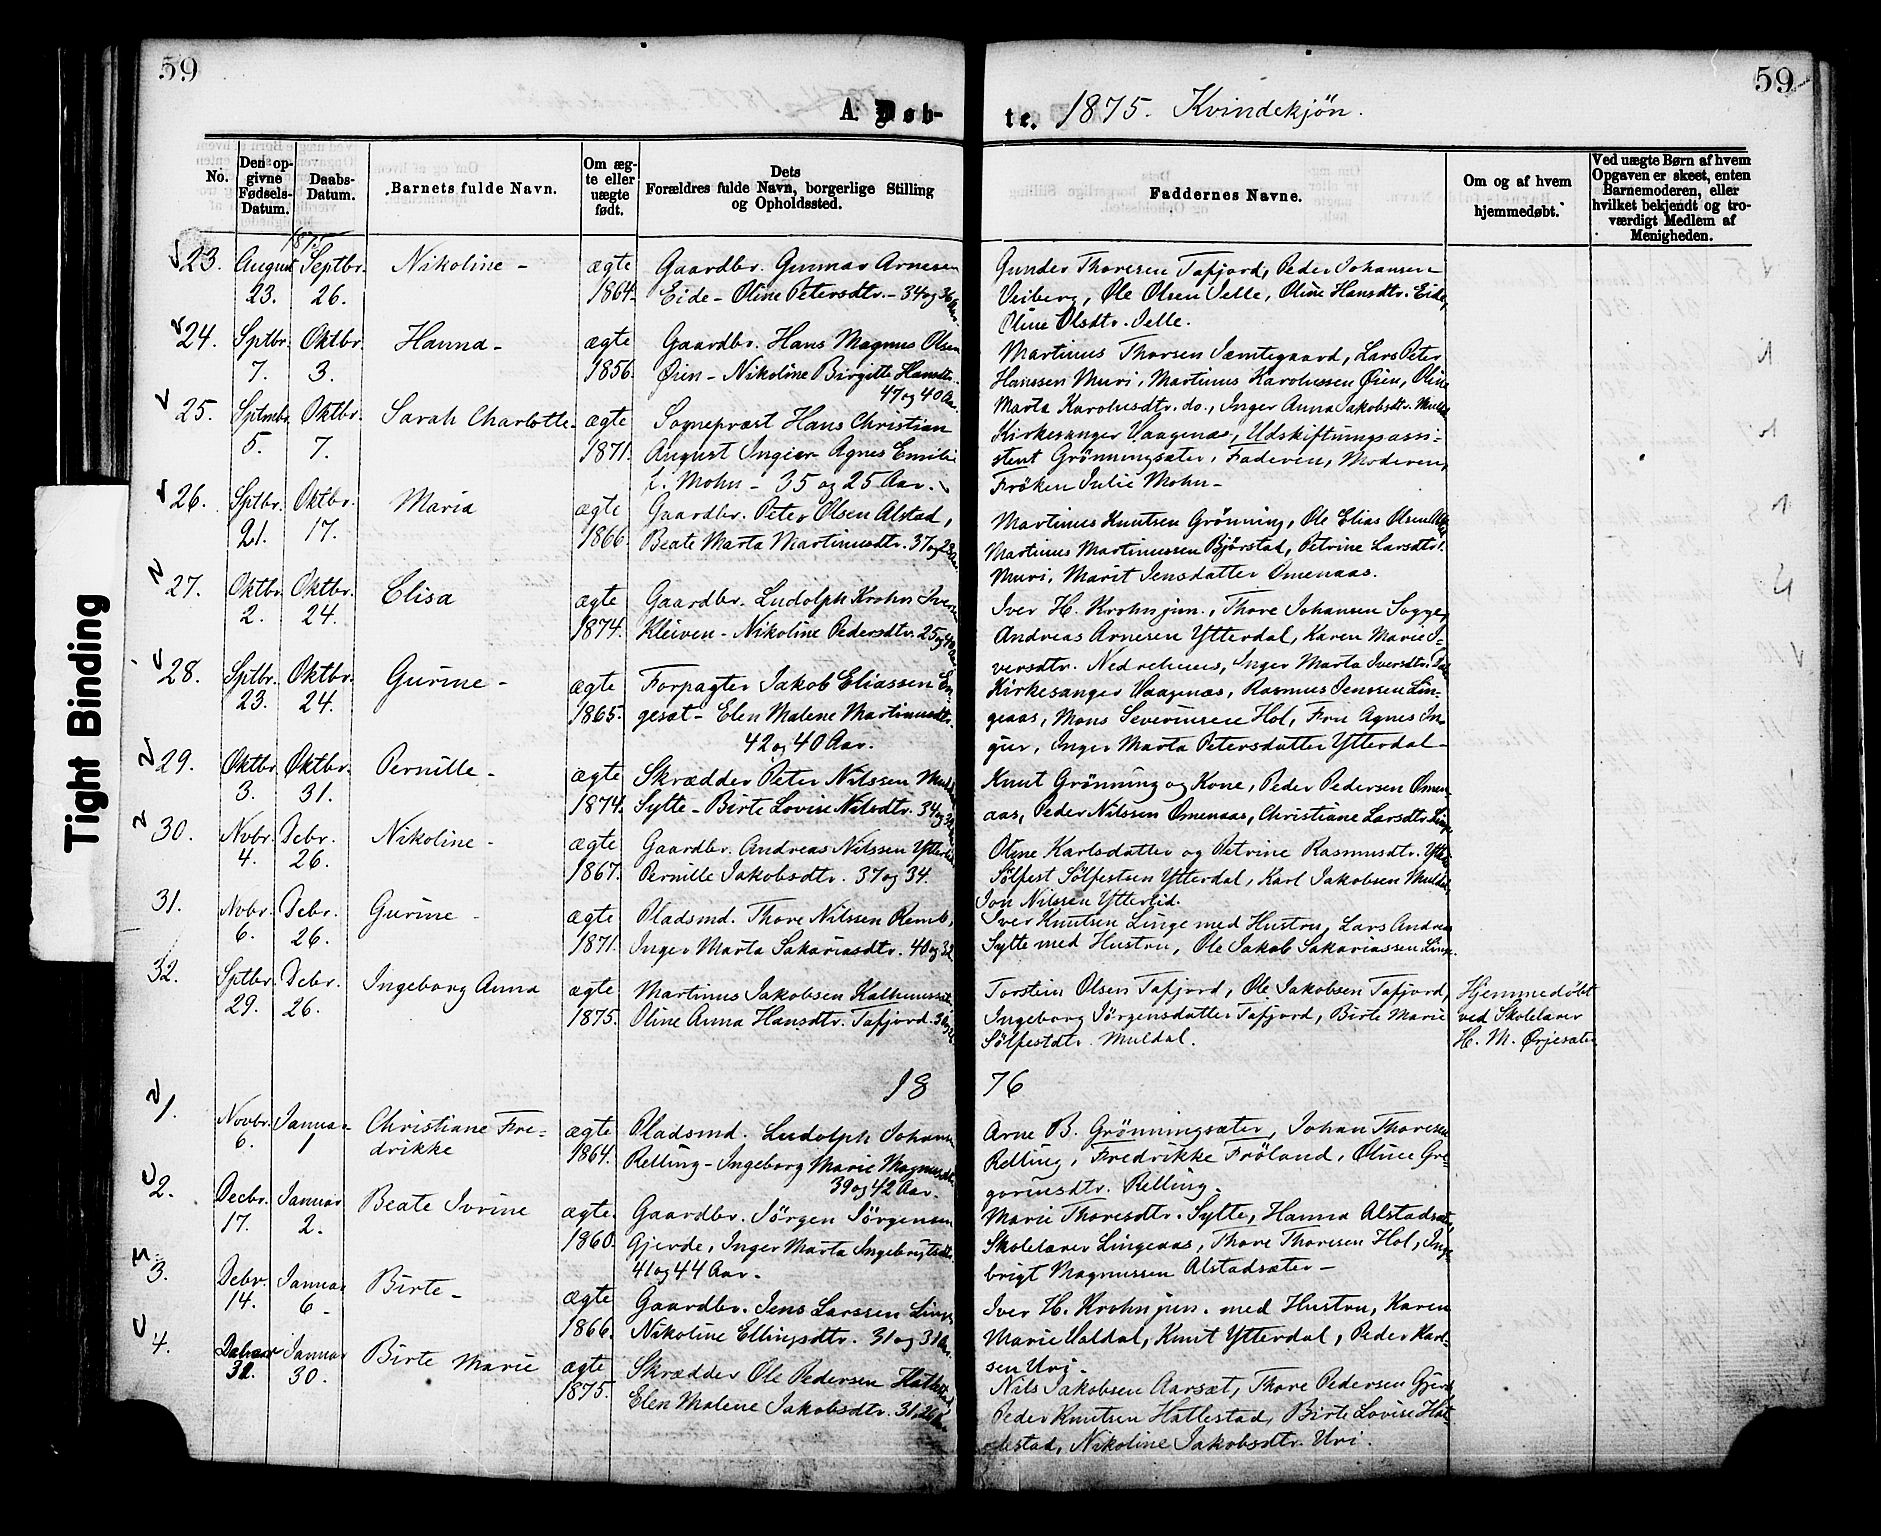 59
59
A. Døb-
te. 1875. Kvindekjön.
No.
Den op-
givne
Fødsels-
Datum.
Daabs-
Datum.
Barnets fulde Navn.
Om æg-
te eller
uægte
født.
Dets
Forældres fulde Navn, borgerlige Stilling
og Opholdssted.
Faddernes Navne.
Om og af hvem
hjemmedøbt.
Ved uægte Børn af hvem
Opgaven er skeet, enten
Barnemoderen, eller
hvilket bekjendt og tro-
værdigt Medlem af
Menigheden.
1875
23. August 23. Septbr. 26. Nikoline - ægte 1864.
Gaardbr. Gunnar Arnesen
Eide - Oline Petersdtr. - 34 og 36 Aar.
Gunder Thoresen Tafjord, Peder Johansen
Veiberg, Ole Olsen Jelle, Oline Hansdtr. Eide,
Oline Olsdtr. Jelle.
24. Sptbr. 7. Oktbr. 3. Hanna - ægte 1856.
Gaardbr. Hans Magnus Olsen
Øien - Nikoline Birgitte Hansdtr.
47 og 40 Aar.
Martinus Thorsen Jemtegaard, Lars Peter
Hanssen Muri, Martinus Karolussen Øien, Oline
Marta Karolusdtr. do., Inger Anna Jakobsdtr. Muldal
25. Sptmbr. 5. Oktbr. 7. Sarah Charlotte - ægte 1871.
Sognepræst Hans Christian
August Ingier - Agnes Emilie
f. Mohn - 35 og 25 Aar.
Kirkesanger Vaagenæs, Udskiftningsassi-
stent Grönningsæter, Faderen, Moderen,
Fröken Julie Mohn -
26. Sptbr. 21. Oktbr. 17. Maria ægte 1866
Gaardbr. Peter Olsen Alstad,
Beate Marta Martinusdtr. 37 og 28 Aar.
Martinus Knutsen Grønning, Ole Elias Olsen
Martinus Martinussen Bjørstad, Petrine Larsdtr.
Muri, Marit Jensdatter Omenaas.
27. Oktbr. 2. Oktbr. 24. Elisa ægte 1874.
Gaardbr. Ludolph Krohn Iversen
Kleiven - Nikoline Pedersdtr. 25 og 40 Aar
Iver H. Krohn jun., Thore Johansen Sogge,
Andreas Arnesen Ytterdal, Karen Marie I-
versdtr. Nedrehuus, Inger Marta Iversdtr.
28. Sptbr. 23. Oktbr. 24. Gurine - ægte 1865.
Forpagter Jakob Eliassen En-
geset - Elen Malene Martinusdtr.
42 og 40 Aar.
Kirkesanger Vaagenæs, Rasmus Jenssen Lin-
geaas, Mons Severinsen Hol, Fru Agnes In-
gier, Inger Marta Petersdatter Ytterdal -
29. Oktbr. 3. Oktbr. 31. Pernille - ægte 1874.
Skrædder Peter Nilssen
Sylte - Birte Lovise Nilsdtr. 34 og 32
Knut Grönning og Kone, Peder Pedersen Omen-
aas, Peder Nilssen Omenaas, Christiane Larsdtr. Linge
30. Nvbr. 4. Debr. 26. Nikoline - ægte 1867.
Gaardbr. Andreas Nilssen Ytterlid
Pernille Jakobsdtr. 37 og 34.
Oline Karlsdatter og Petrine Rasmusdtr.
Sölfest Sölfestsen Ytterdal, Karl Jakobsen Muldal
Jon Nilssen Ytterlid.
31. Nvbr. 6. Debr. 26. Gurine - ægte 1871.
Pladsmd. Thore Nilssen Remb,
Inger Marta Sakariasdtr. 40 og 32
Iver Knutsen Linge med Hustru, Lars Andrea
Sylte med Hustru, Ole Jakob Sakariassen Linge.
32. Sptbr. 29. Debr. 26. Ingeborg Anna ægte 1875.
Martinus Jakobsen Kalhussæt
Oline Anna Hansdtr. Tafjord.
Torstein Olsen Tafjord, Ole Jakobsen Tafjord,
Ingeborg Jörgensdatter Tafjord, Birte Marie
Sölfestdtr. Muldal.
Hjemmedöbt
ved Skolelærer
H. M. Ørjesæter
1876
1. Novbr. 6. Januar 1 Christiane Fre-
drikke ægte 1864.
Pladsmd. Ludolph Johansen
Relling - Ingeborg Marie Magnusdtr.
39 og 42 Aar.
Arne B. Grönningsæter, Johan Thoresen
Relling, Fredrikke Fröland, Oline Gre-
goriusdtr. Relling.
2. Decbr. 17. Januar 2. Beate Ivrine ægte 1860.
Gaardbr. Jörgen Jörgensen
Gjerde, Inger Marta Ingebrigtsdtr.
41 og 44 Aar -
Marie Thoresdtr. Sylte, Hanna Alstadsæter,
Skolelærer Lingeaas, Thore Thoresen Hol, Inge-
brigt Magnussen Alstadsæter -
3. Debr. 14. Januar 6 - Birte - ægte 1866.
Gaardbr. Jens Larssen Linge
Nikoline Ellingsdtr. 31 og 31 Aar.
Iver H. Krohn jun. med Hustru, Karen
Marie Valdal, Knut Ytterdal, Peder Karl-
sen Uri -
4. Januar 30. Birte Marie ægte 1875.
Skrædder Ole Pedersen Hatlestad
Elen Malene Jakobsdtr. 31, 26 Aar
Nils Jakobsen Aarsæt, Thore Pedersen Gjerde
Peder Knutsen Hatlestad, Birte Lovise Hat-
lestad, Nikoline Jakobsdtr. Uri.
Tight Binding